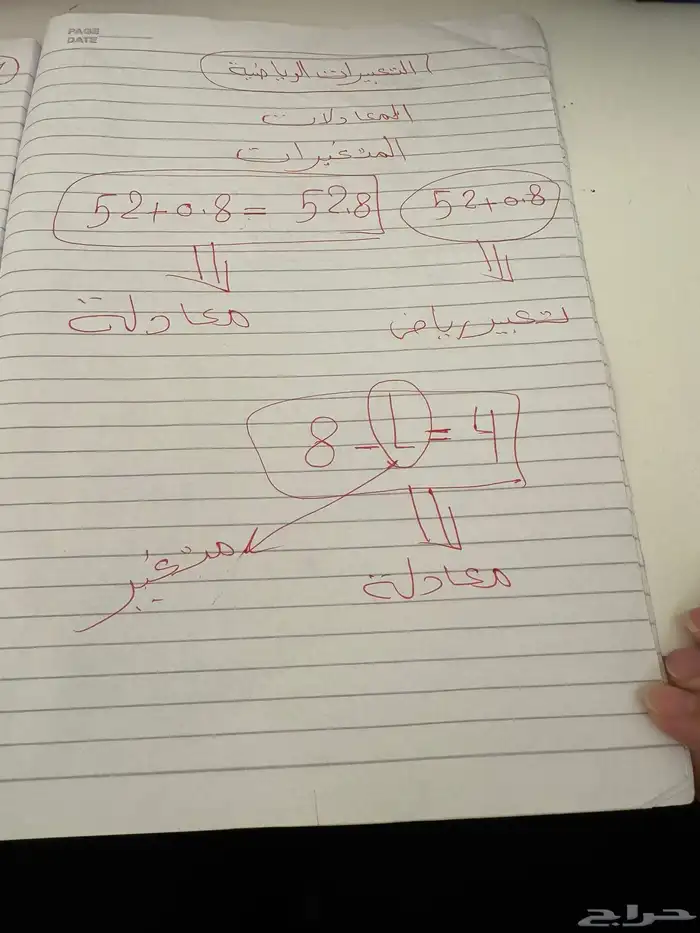 PAGE
DATE
التعبيرات الرياضية
المعادلات
المتغيرات
52+0.8
52+0.8 = 52.8
تعبير رياض
معادلة
8 - L = 4
متغير
معادلة
حراج